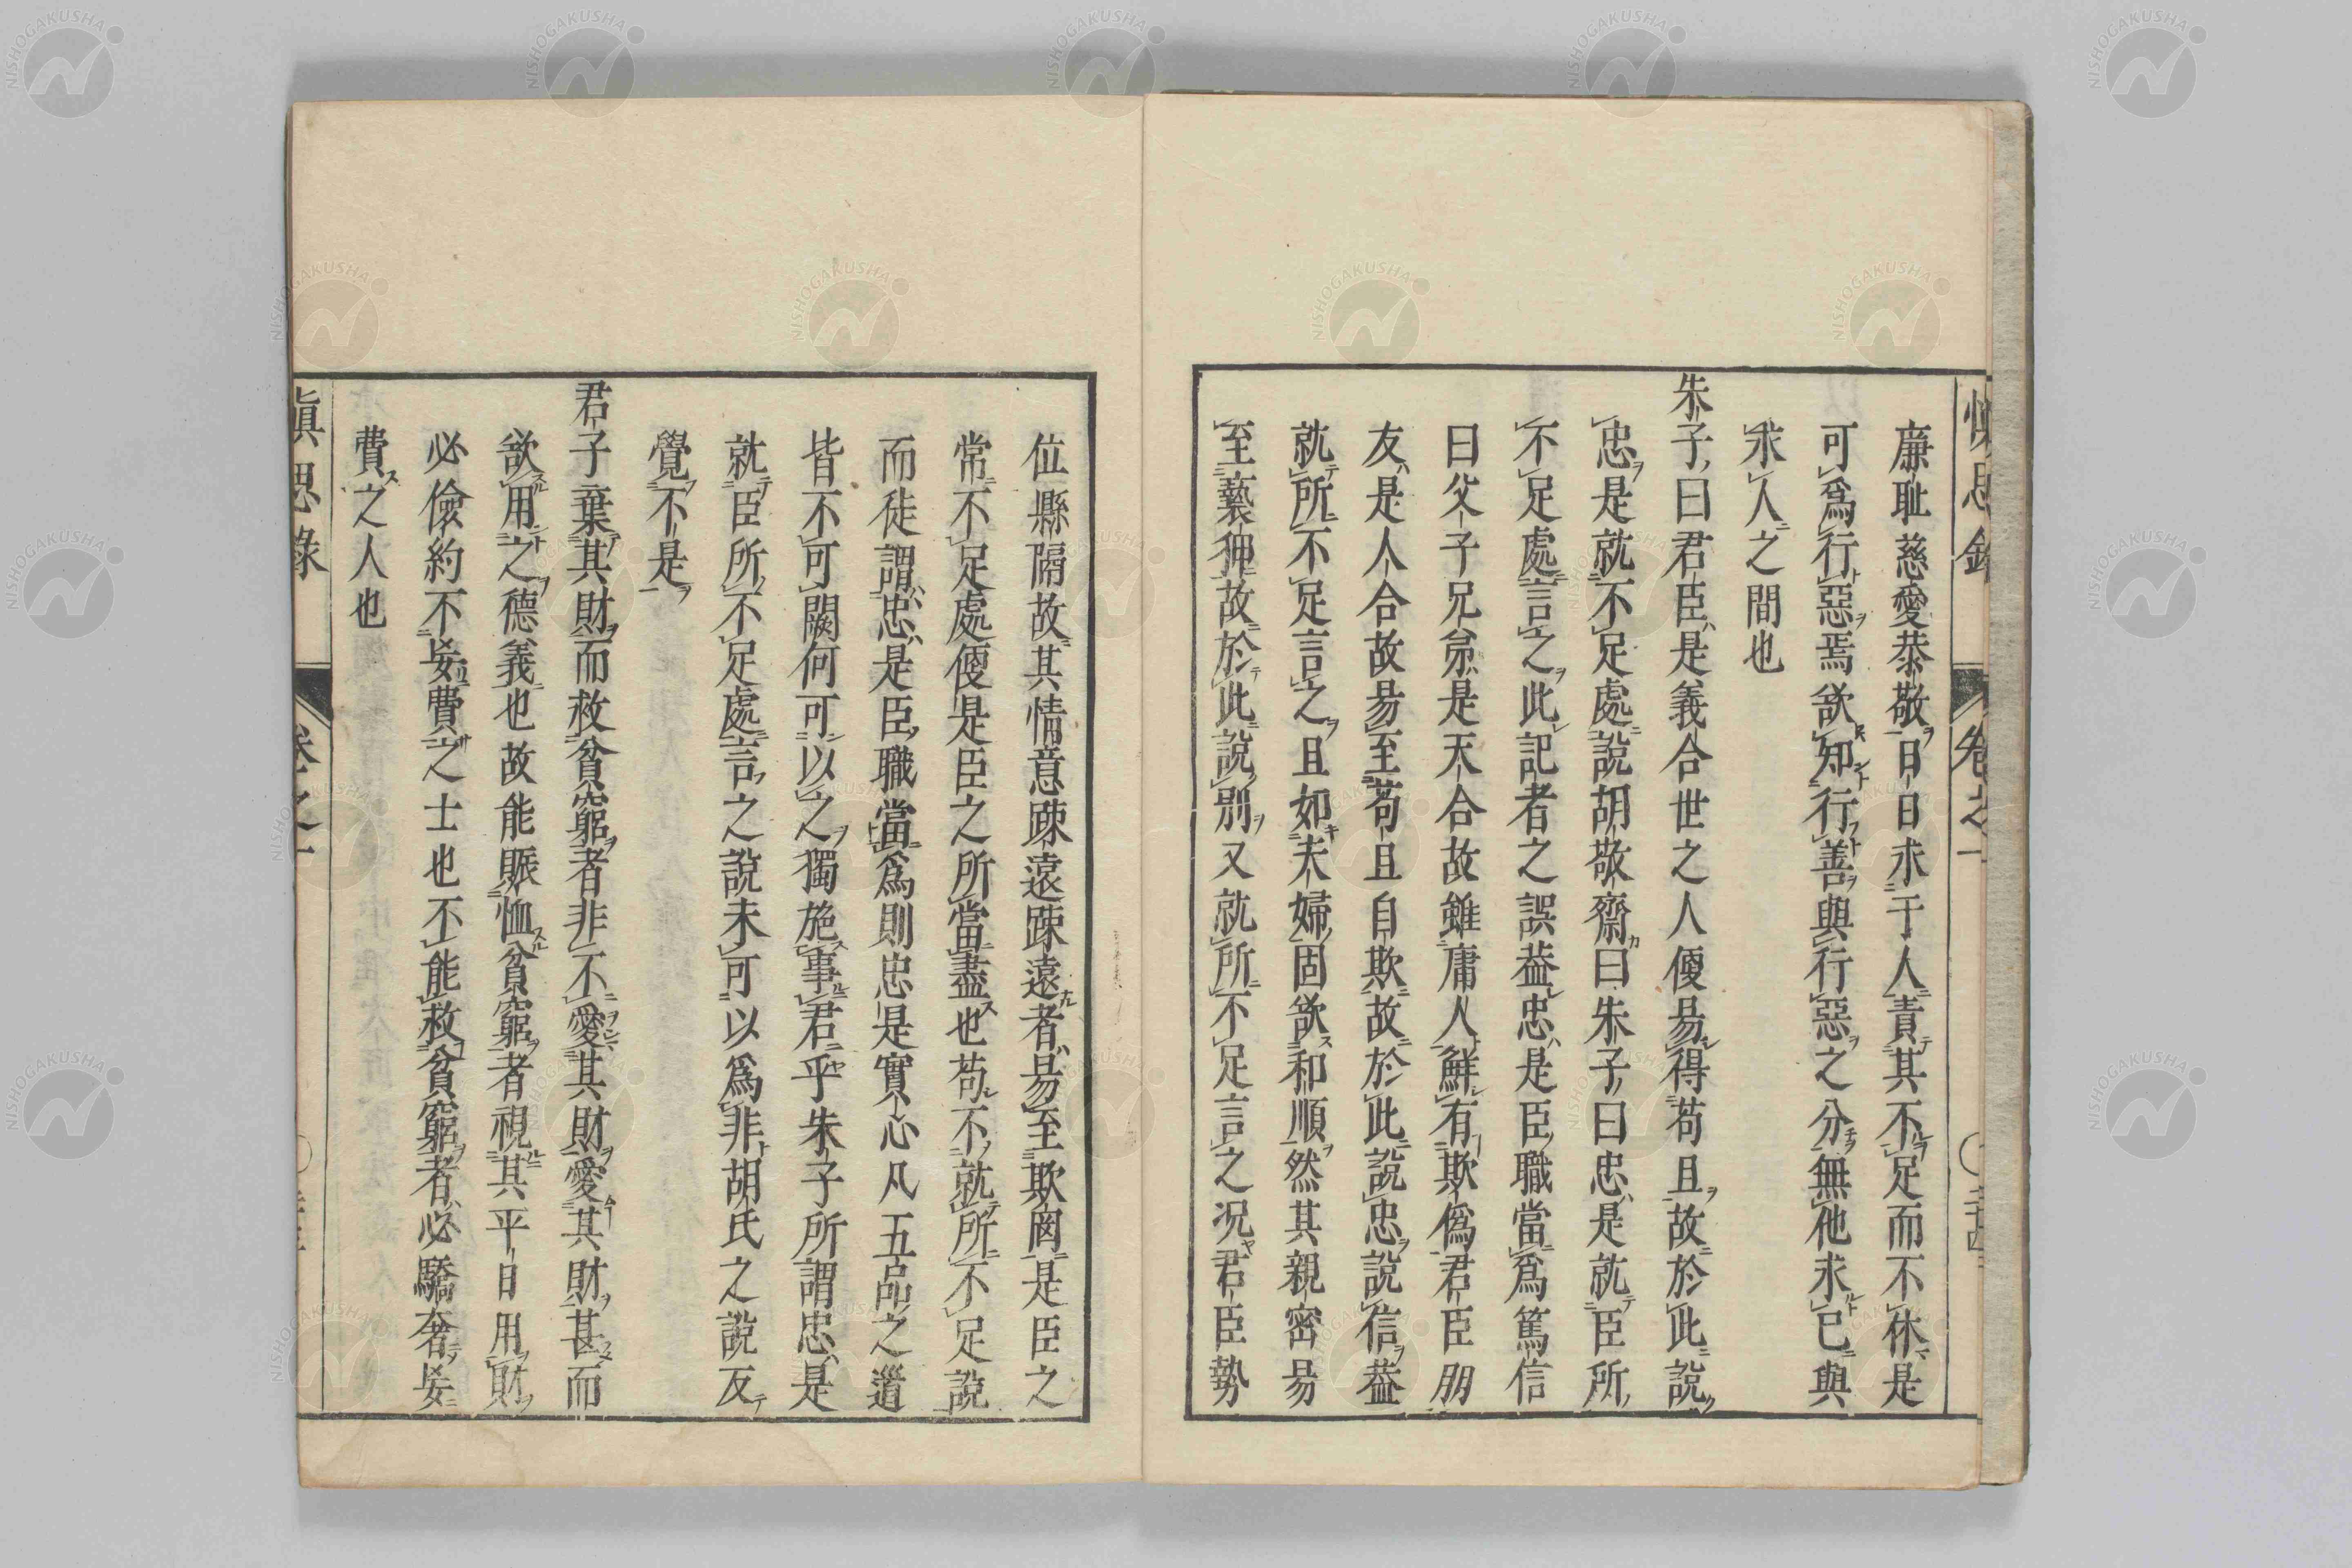 廉耻慈愛恭敬日日求于人責其不足而不休是
可爲行惡焉欲知行善與行惡之分無他求已與
求人之間也
朱子曰君臣是義合世之人便易得苟且故於此說
忠是就不足處說胡敬齋曰朱子曰忠是就臣所
不足處言之此記者之誤葢忠是臣職當爲篤信
曰父子兄弟是天合故雖庸人鮮有欺僞君臣朋
友是人合故易至苟且自欺故於此說忠說信葢
就所不足言之且如夫婦固欲和順然其親密易
至褻狎故於此說別又就所不足言之况君臣勢
位縣隔故其情意踈遠踈遠者易至欺罔是臣之
常不足處便是臣之所當盡也苟不就所不足說
而徒謂忠是臣職當爲則忠是實心凡五品之道
皆不可闕何可以之獨施事君乎朱子所謂忠是
就臣所不足處言之說未可以爲非胡氏之說反
覺不是
君子棄其財而救貧窮者非不愛其財愛其財甚而
欲用之德義也故能賑恤貧窮者視其平日用財
必儉約不妄費之士也不能救貧窮者必驕奢妄
費之人也
愼思錄
卷之一